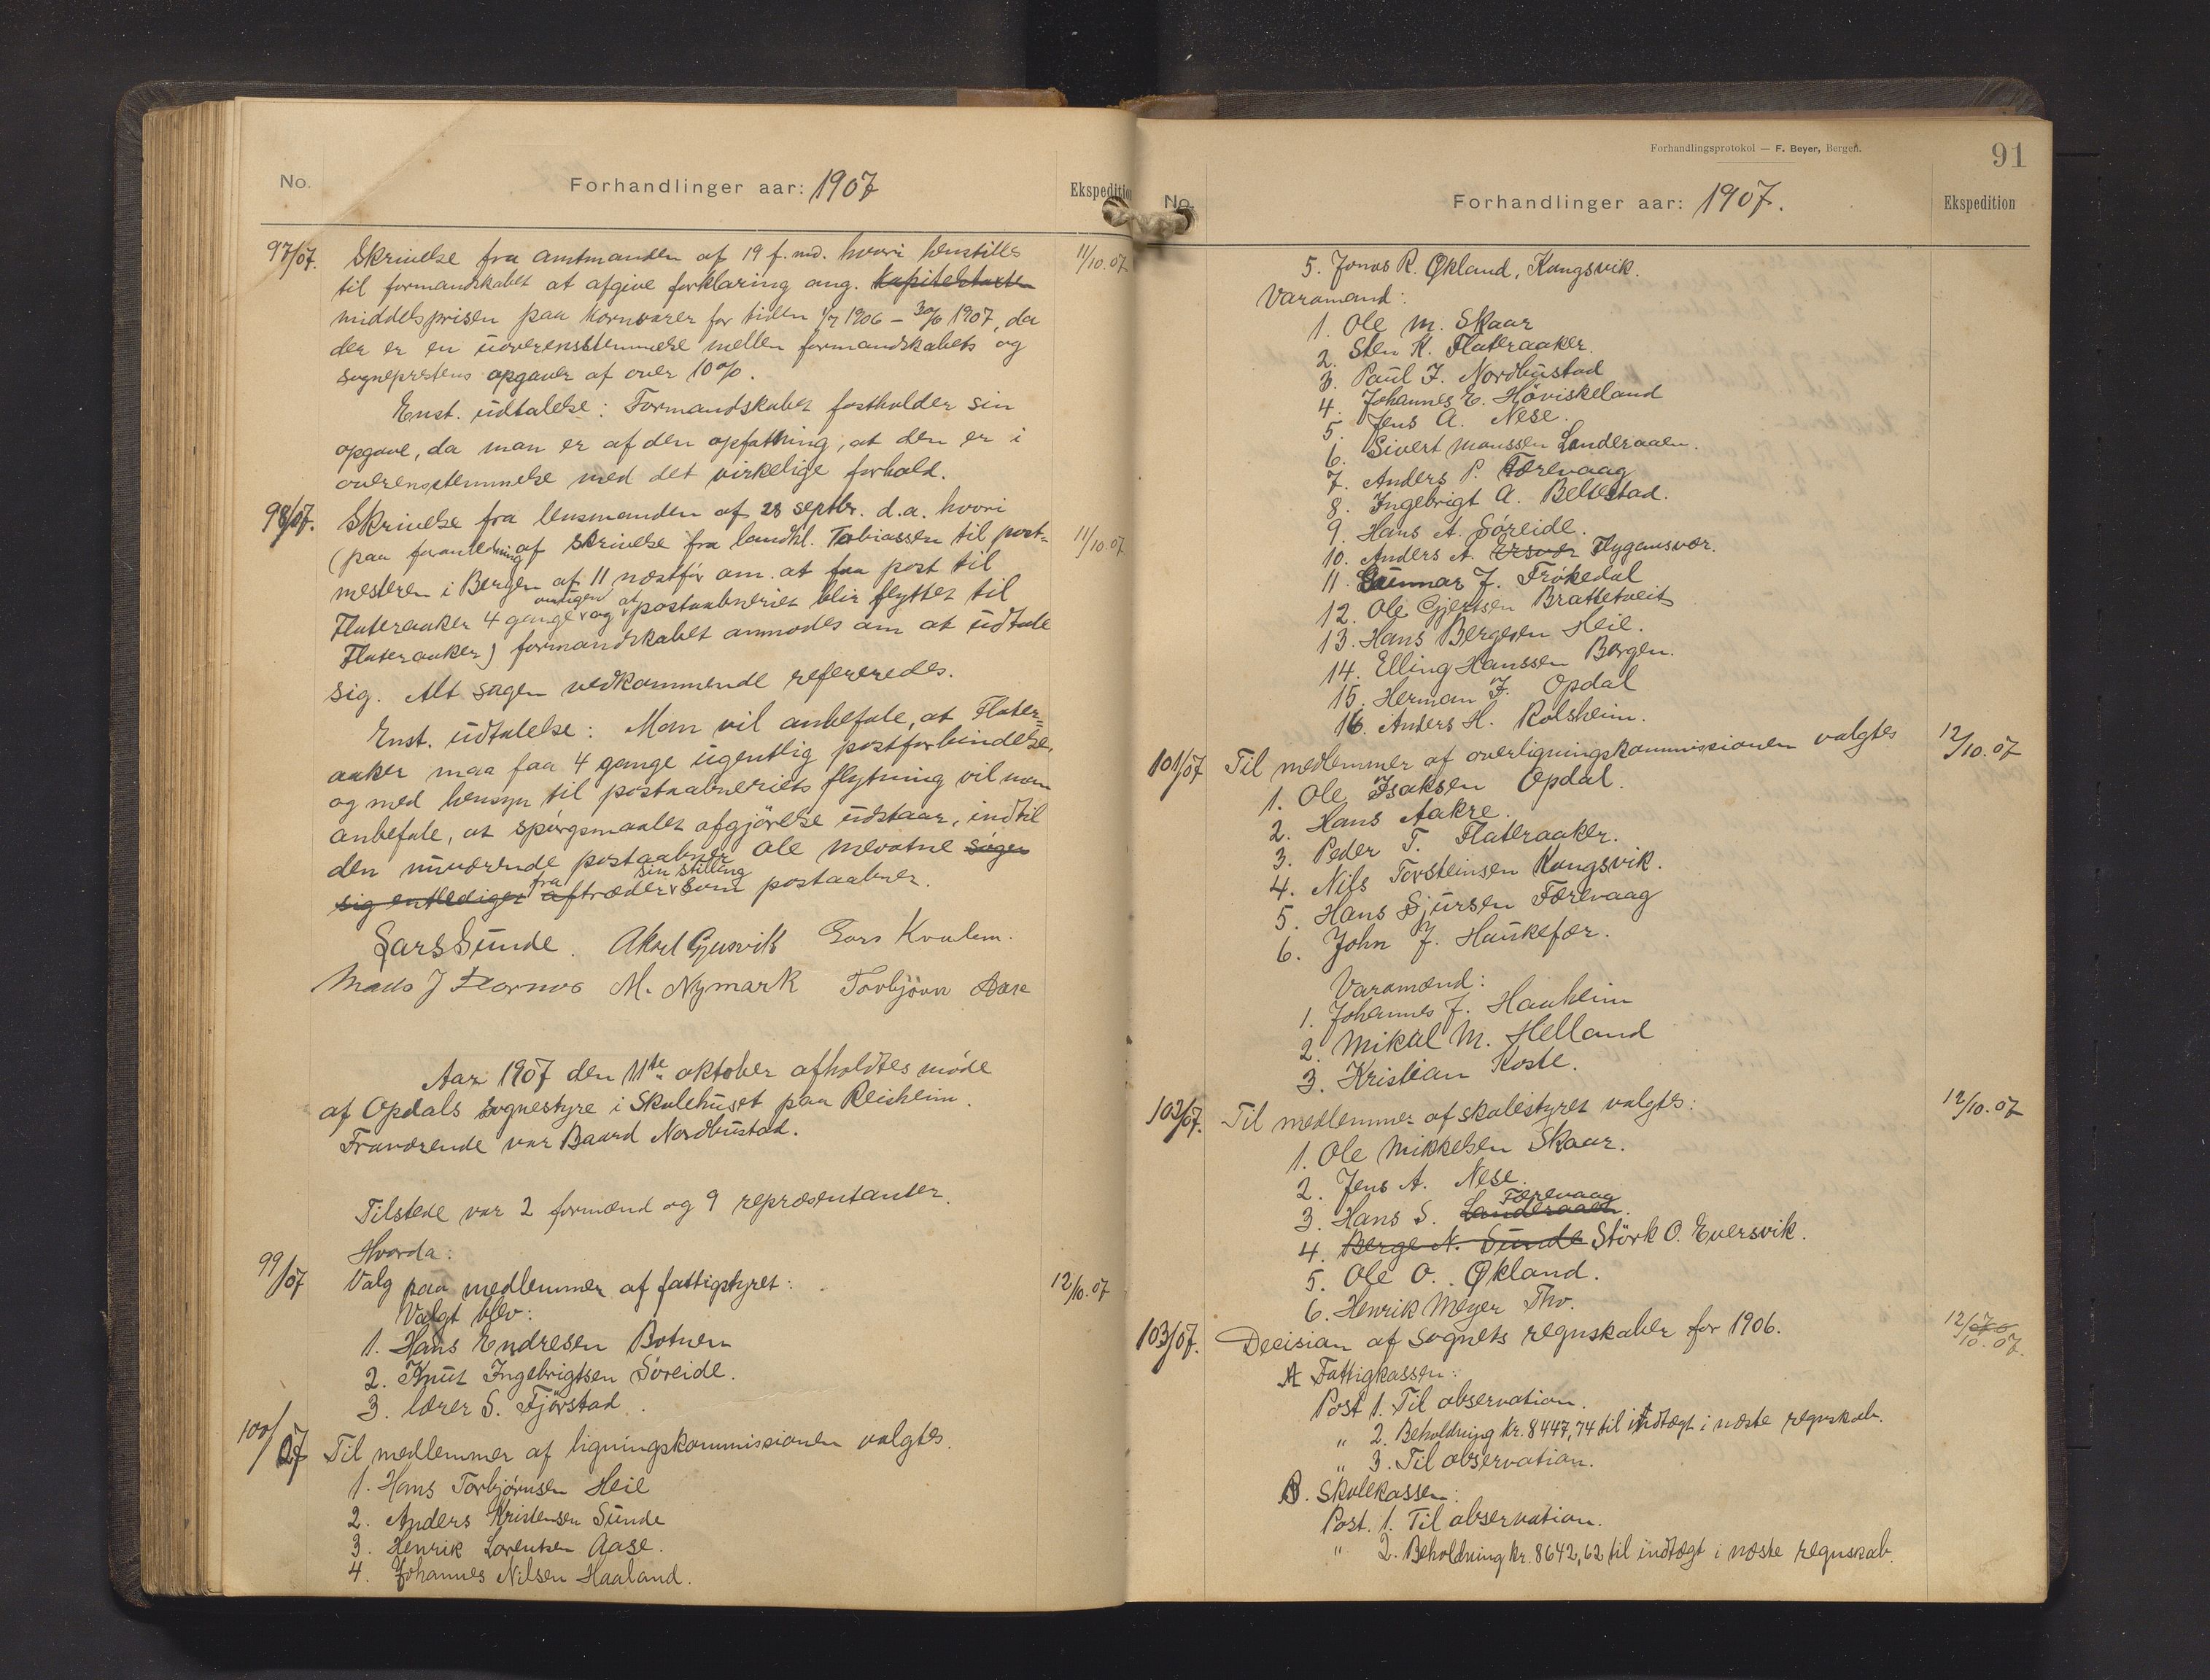 No.
Forhandlinger aar: 1907
Ekspedition
97/07. Skrivelse fra amtmanden af 19 f. md. hvori henstilles 11/10.07
til formandskabet at afgive forklaring ang. kapitelstaxten
middelsprisen paa kornvarer for tiden 1/7 1906 – 30/6 1907, da
der er en uoverensstemmelse mellem formandskabets og
sogneprestens opgaver af over 10 %.
Enst. udtalelse: Formandskabet fastholder sin
opgave, da man er af den opfatning, at den er i
overensstemmelse med det virkelige forhold.
98/07. Skrivelse fra lensmanden af 28 septbr. d.a. hvori
(paa foranledning af skrivelse fra landhl. Tobiassen til post= 11/10.07
mesteren i Bergen af 11 næstfør om at faa post til
Flateraaker 4 gange ugen og at postaabneriet blir flyttet til
Flateraaker) formandskabet anmodes om at udtale
sig. Alt sagen vedkommende refereredes.
Enst. udtalelse: Man vil anbefale, at Flater=
aaker maa faa 4 gange ugentlig postforbindelse,
og med hensyn til postaabneriets flytning vil man
anbefale, at spørgsmaalet afgjørelse udstaar, indtil
den nuværende postaabner Ole Mevatne søger
sig entlediget fra aftræder sin stilling som postaabner.
Lars Sunde. Aksel Gjersvik Lars Kvalem.
Mads J Hornes M. Nymark Torbjörn Aase
Aar 1907 den 11te oktober afholdtes møde
af Opdals sognestyre i Skulehuset paa Reisheim.
Fraværende var Baard Nordbustad.
Tilstede var 2 formænd og 9 repræsentanter.
Hvorda:
99/07 Valg paa medlemmer af fattigstyret: 12/10.07
Valgt blev:
1. Hans Endresen Botnen
2. Knut Ingebrigtsen Søreide.
3. lærer S. Fjørstad.
100/07 Til medlemmer af ligningskommissionen valgtes.
1. Hans Torbjørnsen Heie
2. Anders Kristensen Sunde
3. Henrik Lorentsen Aase.
4. Johannes Nilsen Haaland.
Forhandlingsprotokol — F. Beyer, Bergen.
91
No.
Forhandlinger aar: 1907.
Ekspedition
5. Jonas R. Økland, Kongsvik.
Varamænd:
1. Ole M. Skaar
2. Sten K. Flateraaker.
3. Paul J. Nordbustad
4. Johannes E. Høviskeland
5. Jens A. Nese.
6. Sivert Monssen Landeraaen.
7. Anders P. Færevaag
8. Ingebrigt A. Belkestad.
9. Hans A. Søreide.
10. Anders A. Ersvær Flygansvær.
11. Gunnar J. Frøkedal
12. Ole Gjertsen Brattetveit
13. Hans Bergesen Heie.
14. Elling Hanssen Borgen.
15. Herman J. Opdal
16. Anders H. Rolsheim.
101/07 Til medlemmer af overligningskommissionen valgtes 12/10.07
1. Ole Isaksen Opdal.
2. Hans Aakre.
3. Peder T. Flateraaker.
4. Nils Torsteinsen Kongsvik.
5. Hans Sjursen Færevaag
6. John J. Haukefær.
Varamænd:
1. Johannes J. Hauheim
2. Mikal M. Helland
3. Kristian Koste.
102/07. Til medlemmer af skolestyret valgtes: 12/10.07
1. Ole Mikkelsen Skaar.
2. Jens A. Nese.
3. Hans S. Landeraaen. Færevaag
4. Berge N. Sunde Störk O. Eversvik.
5. Ole O. Økland.
6. Henrik Meyer Tho.
103/07. Decision af sognets regnskaber for 1906. 12/10.07.
A Fattigkassen:
Post 1. Til observation.
" 2. Beholdning kr. 8447,74 til indtægt i næste regnskab.
" 3. Til observation.
B. Skolekassen:
Post. 1. Til observation.
" 2. Beholdning kr. 8642,62 til indtægt i næste regnskab.